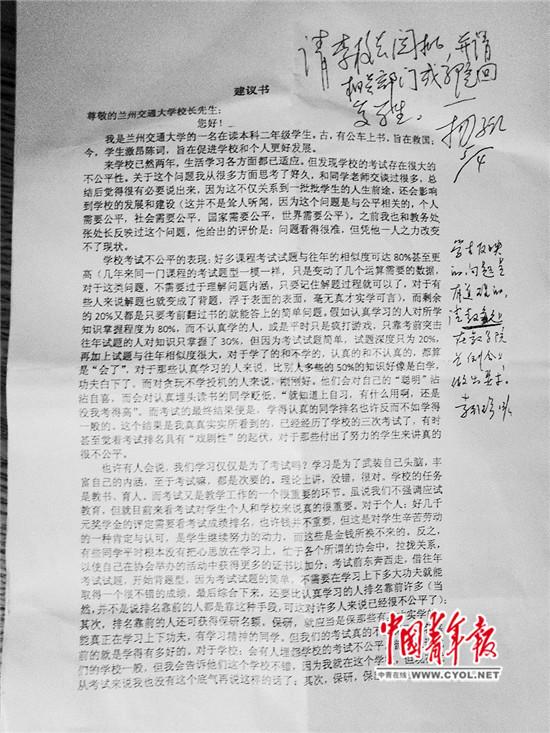 请李校长阅批，并请
相关部门或
学生。
5/4
建议书
尊敬的兰州交通大学校长先生：
您好！
我是兰州交通大学的一名在读本科二年级学生。古，有公车上书，旨在救国；
今，学生激昂陈词，旨在促进学校和个人更好发展。
来学校已然两年，生活学习各方面都已适应。但发现学校的考试存在很大的
不公平性。关于这个问题我从很多方面思考了好久，和同学老师交谈过很多，总
结后觉得很有必要说出来，因为这不仅关系到一批批学生的人生前途，还会影响
到学校的发展和建设（这并不是耸人听闻，因为这个问题是与公平相关的，个人
需要公平，社会需要公平，国家需要公平，世界需要公平）。之前我也和教务处
张处长反映过这个问题，他给出的评价是：问题看得很准，但凭他一人之力改变
不了现状。
学校考试不公平的表现：好多课程考试试题与往年的相似度可达 80%甚至更
高（几年来同一门课程的考试题型一模一样，只是变动了几个运算需要的数据，
对于这类问题，不需要过于理解问题内涵，只要记住解题过程就可以了，对于有
些人来说解题也就变成了背题，浮于表面的表面，毫无真才实学可言），而剩余
的 20%又都是只要考前翻过书的就能答上的简单问题。假如认真学习的人对所学
知识掌握程度为 80%，而不认真学的人，或是平时只是疯打游戏，只靠考前突击
往年试题的人对知识只掌握了 30%，但因为考试试题简单，试题深度只为 20%，
再加上试题与往年相似度很大，对于学了的和不学的，认真的和不认真的，都算
是“会了”，对于那些认真学习的人来说，比别人多些的 50%的知识好像是白学，
功夫白下了。而对贪玩不学投机的人来说，刚刚好。他们会对自己的“聪明”沾
沾自喜，而会对认真埋头读书的同学贬低，“就知道上自习，有什么用啊，还是
没我考得高”。而考试的最终结果便是，学得认真的同学排名也许反而不如学得
一般的。这个结果是我真真实实所看到的，已经经历了学校的三次考试了，有时
甚至觉着考试排名具有“戏剧性”的起伏，对于那些付出了努力的学生来讲真的
很不公平。
也许有人会说，我们学习仅仅是为了考试吗？学习是为了武装自己头脑，丰
富自己的内涵，至于考试嘛，都是次要的。理论上讲，没错，很对。学校的任务
是教书，育人。而考试又是教学工作的一个很重要的环节。虽说我们不强调应试
教育，但就目前来看考试对学生个人和学校来说真的很重要。对于个人：好几千
元奖学金的评定需要看考试成绩排名，也许钱并不重要，但这是对学生辛苦劳动
的一种肯定与认可，是学生继续努力的动力，而这些是金钱所换不来的。反之，
有些同学平时根本没有把心思放在学习上，忙于各个所谓的协会中，拉拢关系，
以使自己在协会举办的活动中获得更多的证书以加分；考试前东奔西走，借往年
考试试题，开始背题型，因为考试试题的简单，不需要在学习上下多大功夫就能
取得一个很不错的成绩，最后综合下来，还要比认真学习的人排名靠前许多（当
然，并不是说排名靠前的人都是靠这种手段，可这对许多人来说已经很不公平了）；
其次，排名靠前的人还可获得保研名额。保研，就应当是保那些有
能真正在学习上下功夫，有学习精神的同学。但我们的考试真的不
前的就是学得有多好的。对于学校：会有人埋怨学校的考试不公平
们的学校一般，但我会告诉他们这个学校不错，因为我就在这个学
从考试来说我也没有这个底气再说这样的话了；其次，保研，保
学生反映
的问题是
有道理的，
请教务处
在教学院
长例会上
做出要求。
中国青年报
中青在线 WWW.CYOL.NET